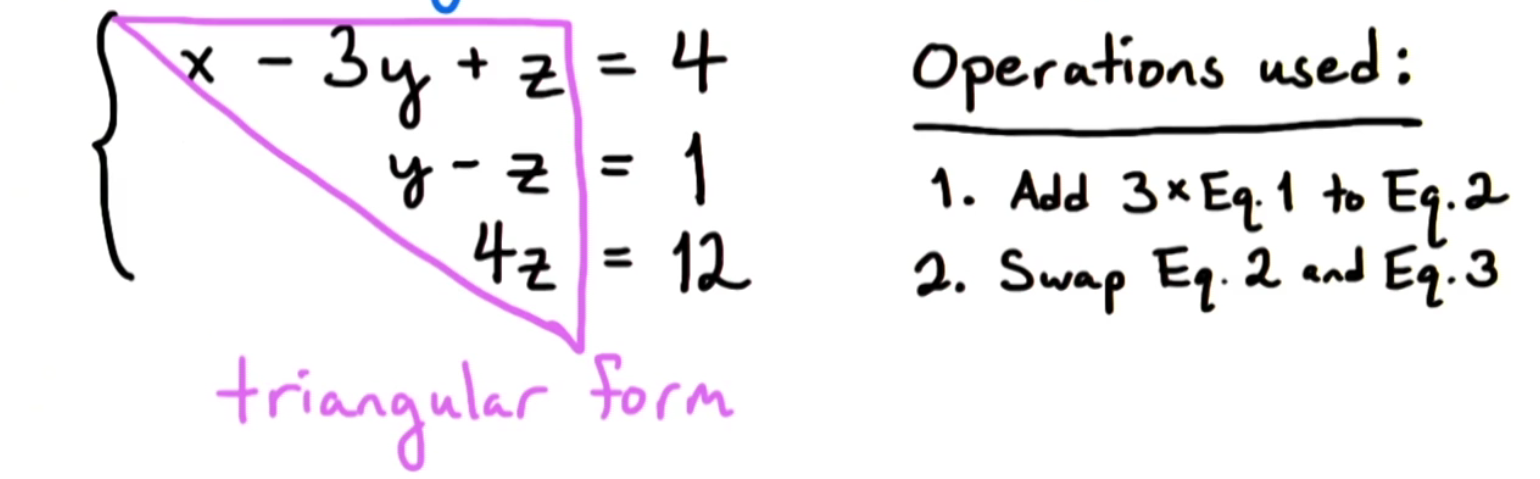 x - 3y + z = 4
y - z = 1
4z = 12
triangular form
Operations used:
1. Add 3×Eq.1 to Eq.2
2. Swap Eq.2 and Eq.3